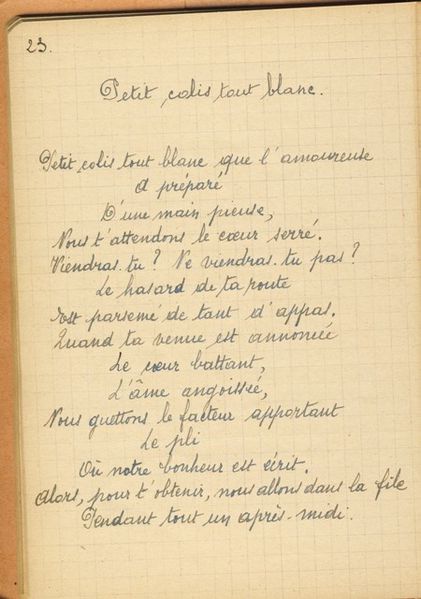 23.
Petit colis tout blanc.
Petit colis tout blanc que l'amoureuse
A préparé
D'une main pieuse,
Nous t'attendons le cœur serré.
Viendras-tu ? Ne viendras-tu pas ?
Le hasard de ta route
Est parsemé de tant d'appas.
Quand ta venue est annoncée
Le cœur battant,
L'âme angoissée,
Nous guettons le facteur apportant
Le pli
Où notre bonheur est écrit.
Alors, pour t'obtenir, nous allons dans la file
Pendant tout un après-midi.